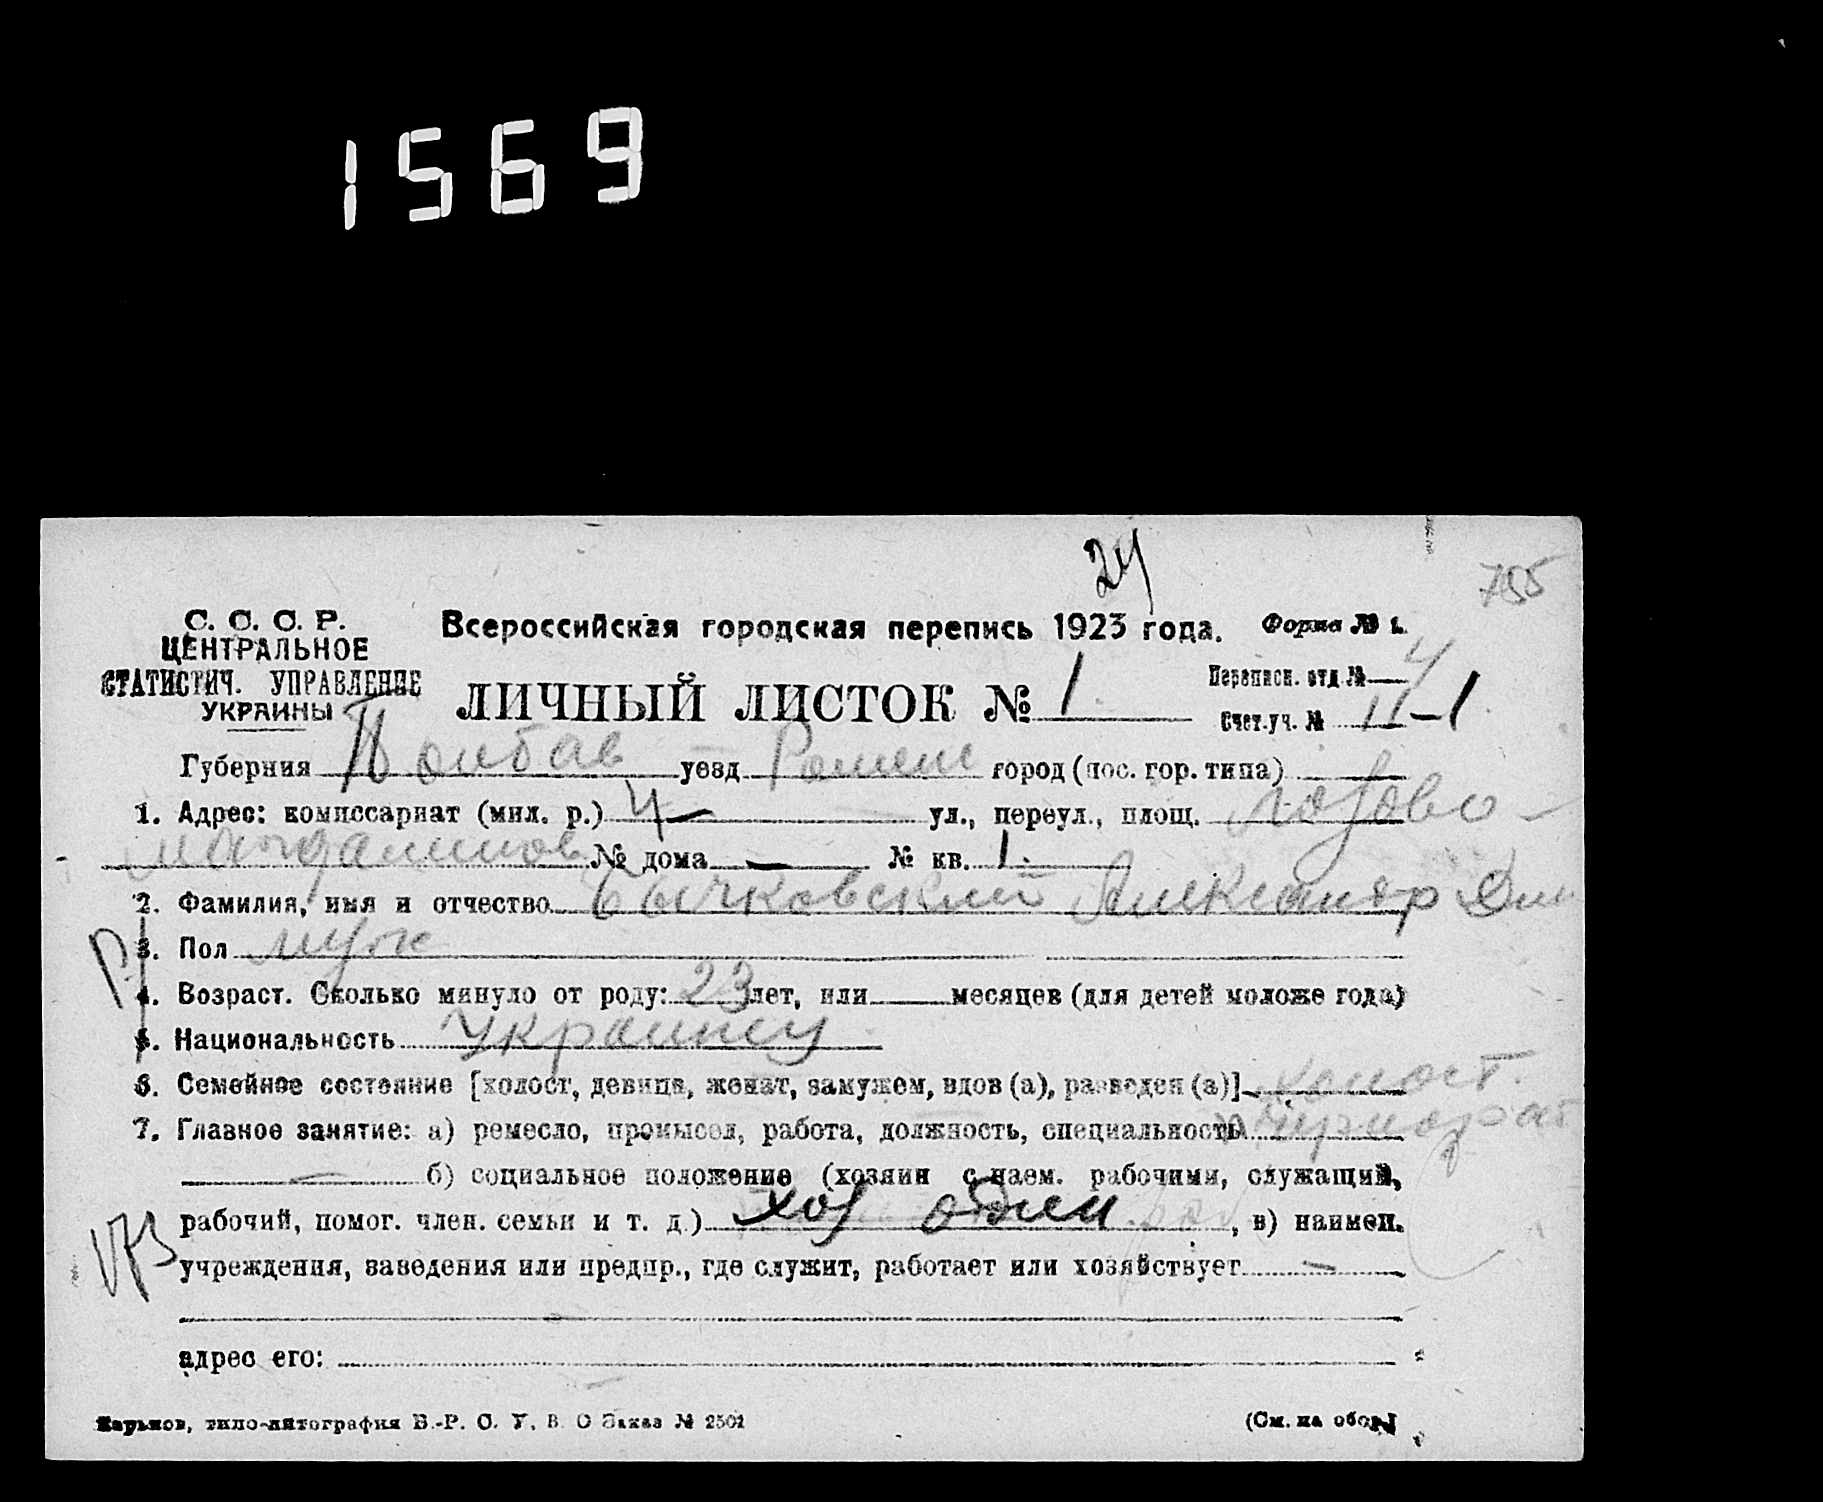 1569
24
755
С. С. С. Р.
ЦЕНТРАЛЬНОЕ
СТАТИСТИЧ. УПРАВЛЕНИЕ
УКРАИНЫ
Всероссийская городская перепись 1923 года. Форма № 1.
ЛИЧНЫЙ ЛИСТОК № 1.
Переписн. отд. № 4
Счет. уч. № 11-1
Губерния Полтав уезд Ромен город (пос. гор. типа)
1. Адрес: комиссариат (мил. р.) 4 — ул., переул., площ. Лозово-
№ дома — № кв. 1.
2. Фамилия, имя и отчество Бычковский Александр Дми
3. Пол муж
4. Возраст. Сколько минуло от роду: 23 лет, или месяцев (для детей моложе года)
5. Национальность украинец
6. Семейное состояние [холост, девица, женат, замужем, вдов (а), разведен (а)] холост.
7. Главное занятие: а) ремесло, промысел, работа, должность, специальность
— б) социальное положение (хозяин с наем. рабочими, служащий,
рабочий, помог. член. семьи и т. д.) хоз один, в) наимен.
учреждения, заведения или предпр., где служит, работает или хозяйствует —
адрес его:
Харьков, типо-литография В.-Р. С. У. В. О Заказ № 2502
(См. на обор.)